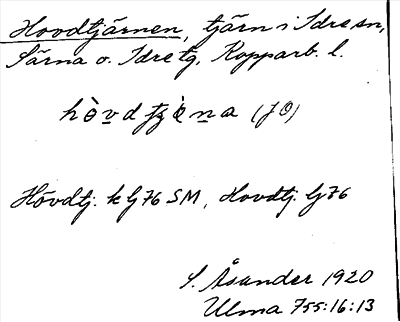 Hovdtjärnen, tjärn i Idre sn,
Särna o. Idre tg, Kopparb. l.
hòvdtjæ̀na (JO)
Hövdtj. k Gj76 SM, Hovdtj. Gj76
S. Åsander 1920
Ulma 755:16:13